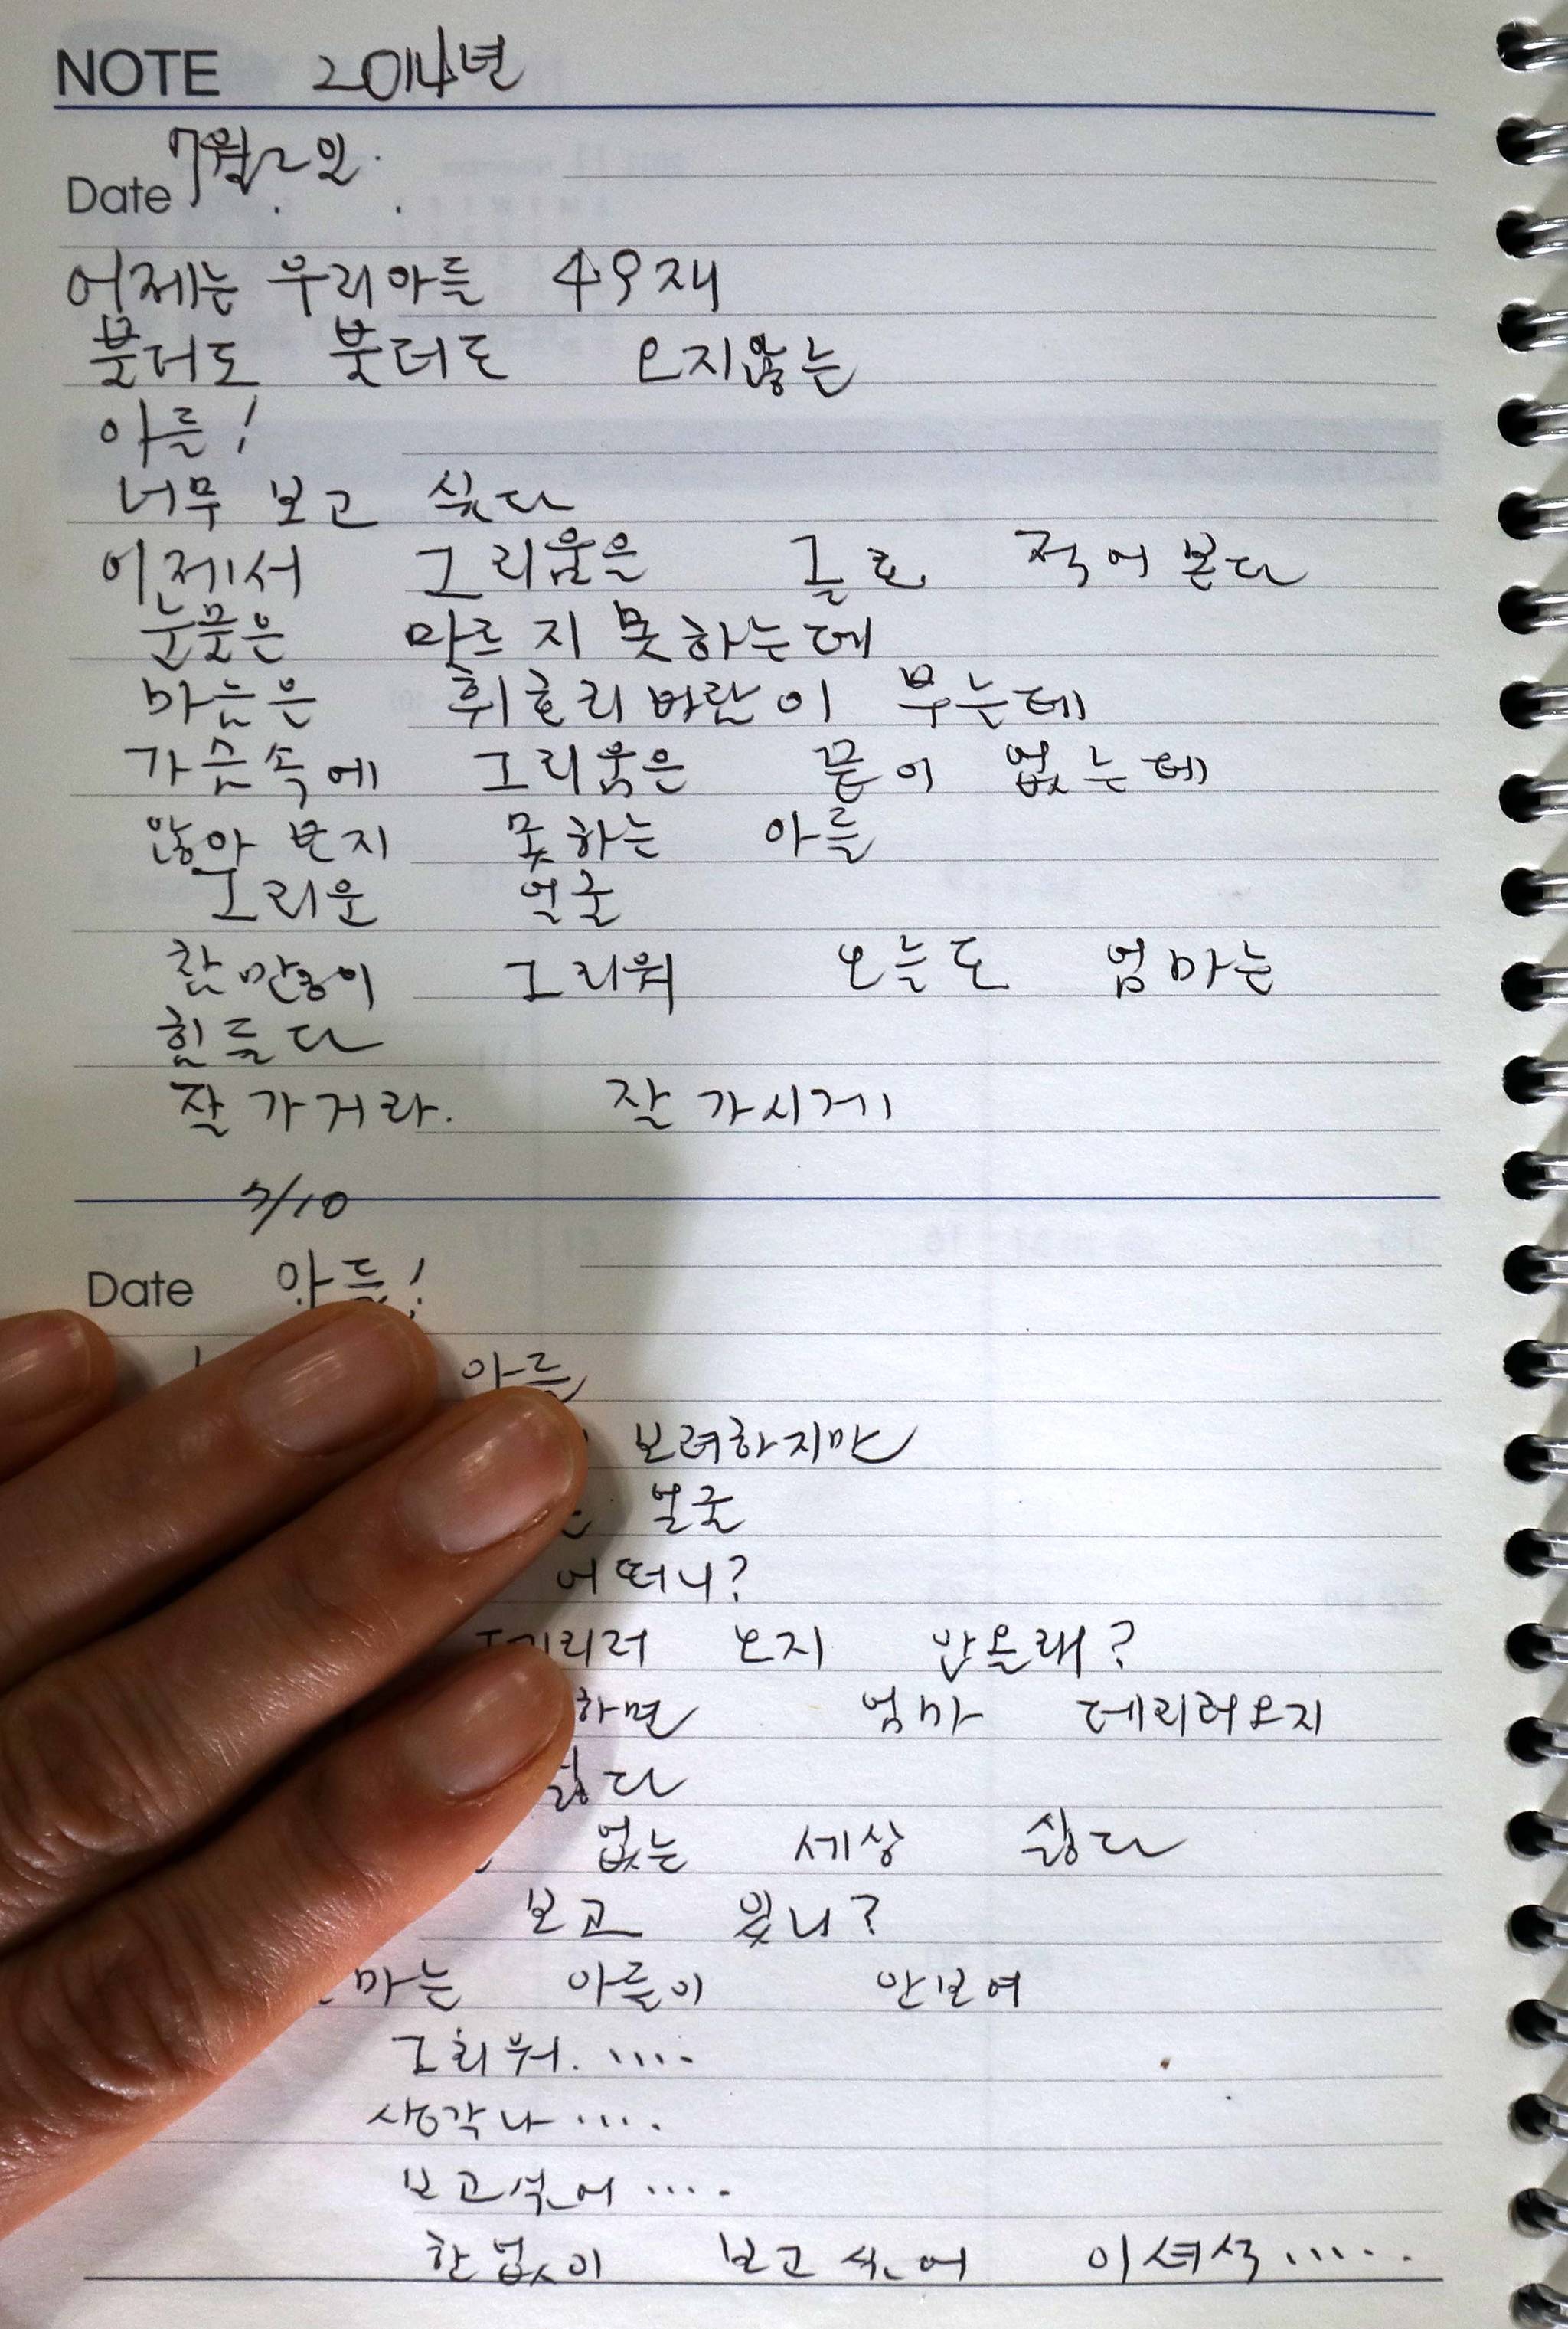 NOTE 2014년
7월 2일.
Date
어제는 우리아들 49재
불더도 불더도 오지않는
아들!
너무 보고 싶다
이제서 그리움은 글로 적어 본다
눈물은 마르지 못하는데
마음은 휘호리 바람이 부는데
가슴속에 그리움은 끝이 없는데
않아 보지 못하는 아들
그리운 얼굴
참 많이 그리워 오늘도 엄마는
힘들다
잘 가거라. 잘 가시게
7/10
Date 아들!
아들
보려하지만
얼굴
어떠니?
오지 않을래?
하면 엄마 데리러오지
싫다
없는 세상 싫다
보고 있니?
마는 아들이 안보여
그리워.....
생각나....
보고싶어....
한없이 보고싶어 이녀석.....